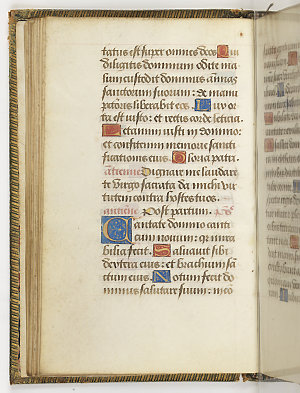 tatus est super omnes deos Qui
diligitis dominum odite ma
lum custodit dominus animas
sanctorum suorum: de manu
peccatoris liberabit eos. Lux or
ta est iusto: et rectis corde leticia.
Letamini iusti in domino:
et confitemini memorie sancti
ficationis eius. Gloria patri.
antienne Dignare me laudare
te virgo sacrata da michi vir
tutem contra hostes tuos.
antienne Post partum. ps
Cantate domino canti
cum novum: quia mira
bilia fecit. Salvavit sibi
dextera eius: et brachium san
ctum eius. Notum fecit do
minus salutare suum: in co